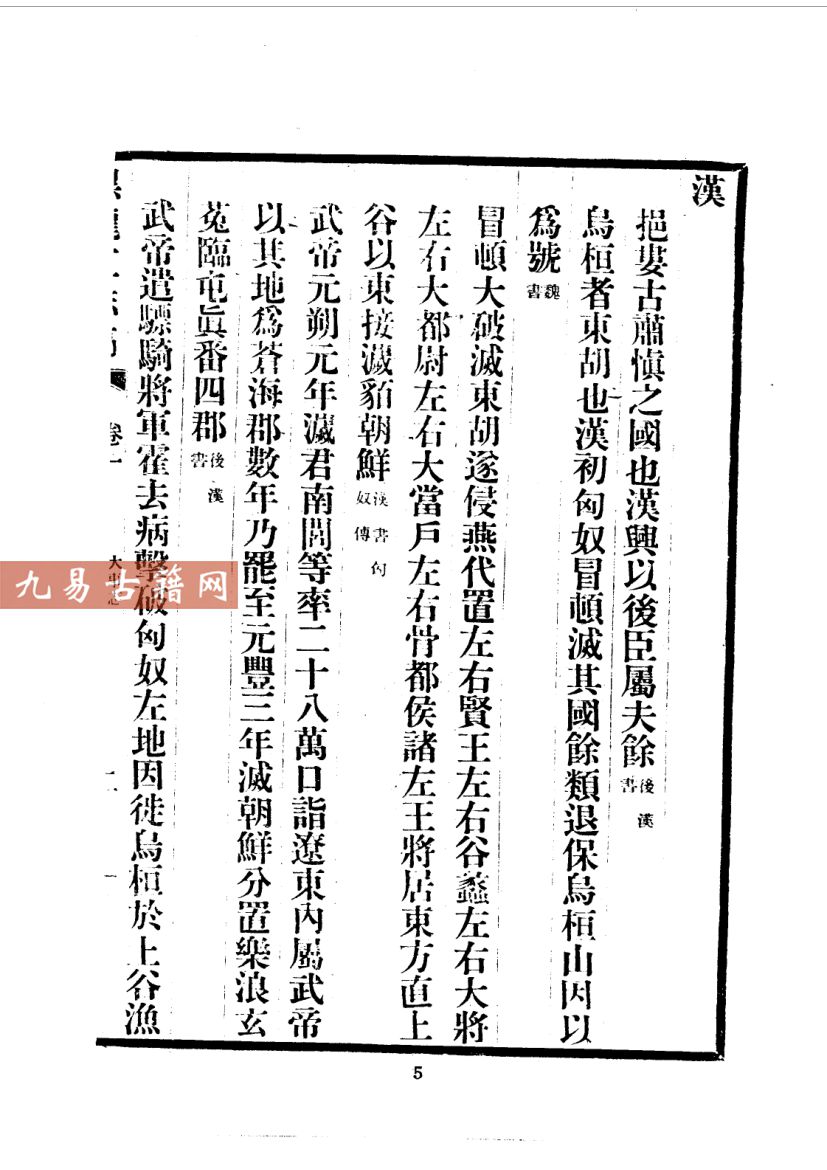 漢
挹婁古肅愼之國也漢興以後臣屬夫餘後漢書
烏桓者東胡也漢初匈奴冒頓滅其國餘類退保烏桓山因以
爲號魏書
冒頓大破滅東胡遂侵燕代置左右賢王左右谷蠡左右大將
左右大都尉左右大當戶左右骨都侯諸左王將居東方直上
谷以東接濊貊朝鮮漢書匈奴傳
武帝元朔元年濊君南閭等率二十八萬口詣遼東內屬武帝
以其地爲蒼海郡數年乃罷至元豐三年滅朝鮮分置樂浪玄
菟臨屯眞番四郡後漢書
武帝遣驃騎將軍霍去病擊破匈奴左地因徙烏桓於上谷漁
卷一
大事志
九易古籍网
5